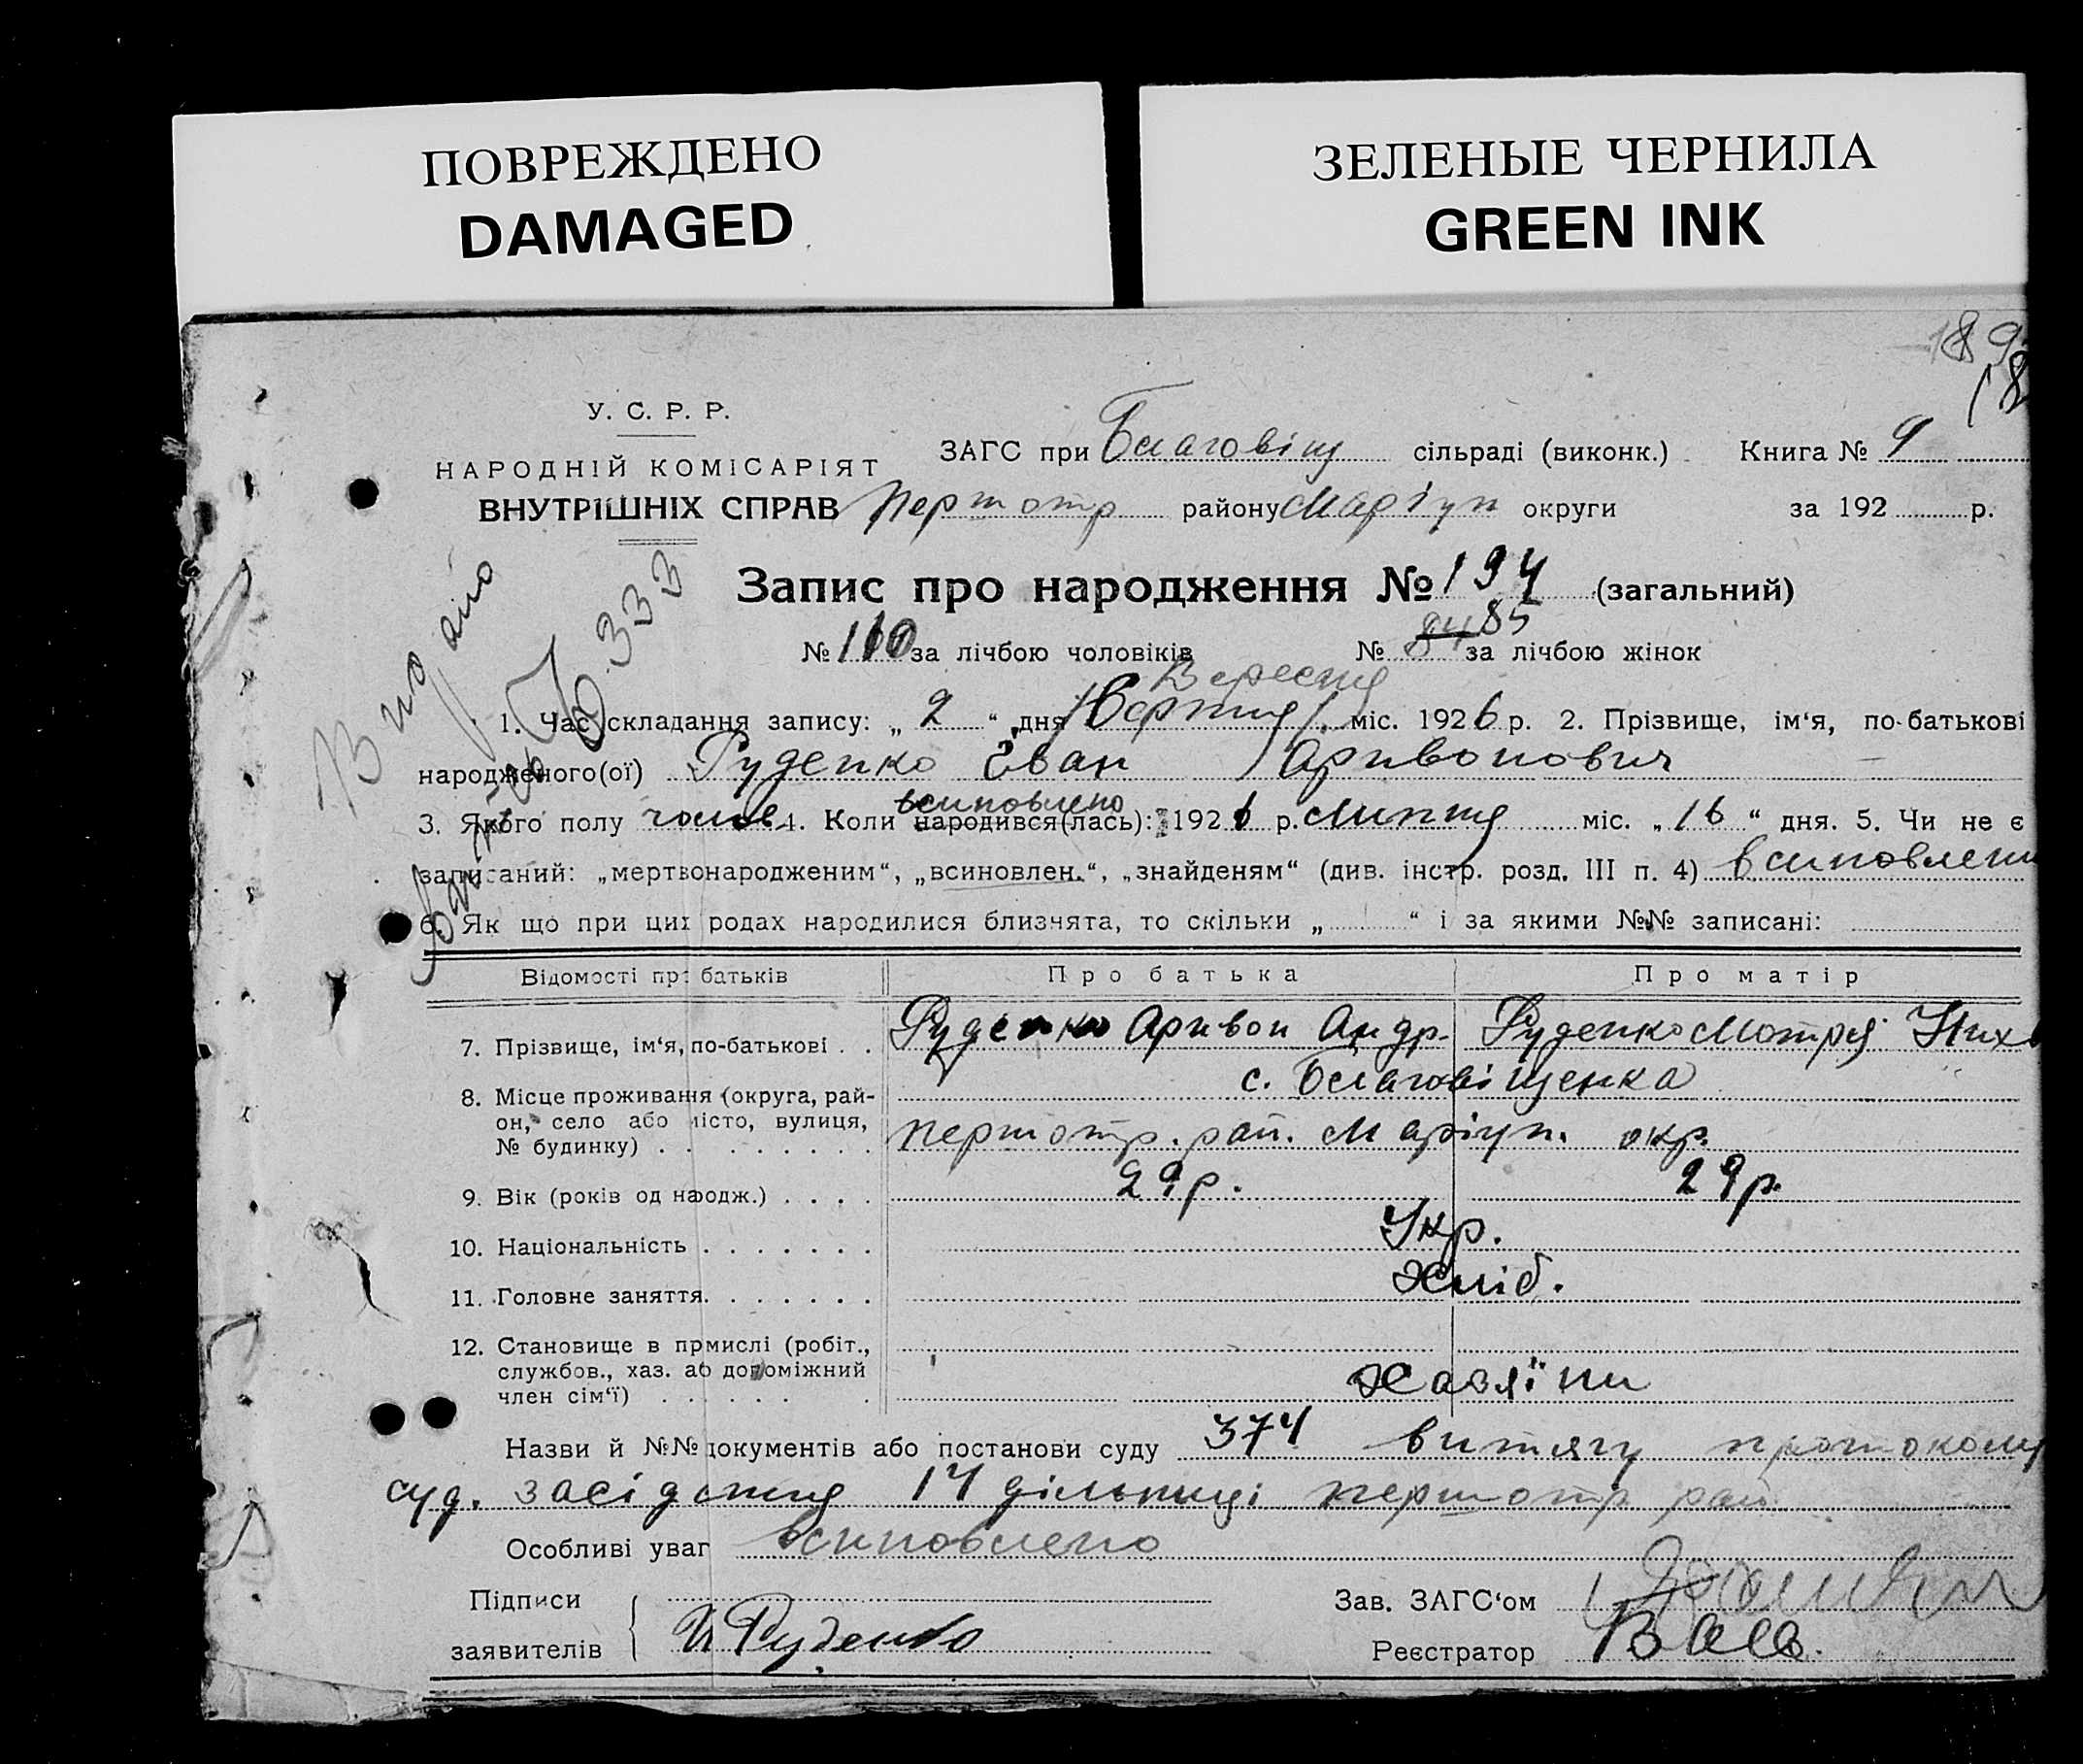 ПОВРЕЖДЕНО
DAMAGED
ЗЕЛЕНЫЕ ЧЕРНИЛА
GREEN INK
189
18
У. С. Р. Р.
НАРОДНІЙ КОМІСАРІЯТ
ВНУТРІШНІХ СПРАВ
ЗАГС при Благовіщ сільраді (виконк.) Книга № 9
першотр району Маріуп округи за 192 р.
Видано
333
Запис про народження № 194 (загальний)
№ 110 за лічбою чоловіків № 84 85 за лічбою жінок
Вересня
1. Час складання запису: „ 2 “ дня Вертня міс. 1926 р. 2. Прізвище, ім‘я, по-батькові
народженого(ої) Руденко Іван
всиновлено
3. Якого полу чолов. 4. Коли народився(лась): 1926 р. Липня міс. „ 16 “ дня. 5. Чи не є
записаний: „мертвонародженим“, „всиновлен.“, „знайденям“ (див. інстр. розд. III п. 4) всиновлени
6. Як що при цих родах народилися близнята, то скільки „ “ і за якими №№ записані:
Відомості про батьків Про батька Про матір
7. Прізвище, ім‘я, по-батькові . . Руденко Андр. Руденко Мотря
8. Місце проживання (округа, рай-
он, село або місто, вулиця,
№ будинку) . . . . . . . .
с. Благовіщенка
першотр. рай. Маріуп. окр.
9. Вік (років од народж.) . . . . 29 р. 29 р.
10. Національність . . . . . . . Укр.
11. Головне заняття. . . . . . . Хліб.
12. Становище в прмислі (робіт.,
службов., хаз. або допоміжний
член сім‘ї) . . . . . .
Хазяїни
Назви й №№ документів або постанови суду 374 витягу протоколу
суд. засідання 14 дільниці першотр рай
Особливі уваг всиновлено
Підписи
заявителів И Руденко
Зав. ЗАГС‘ом
Реєстратор